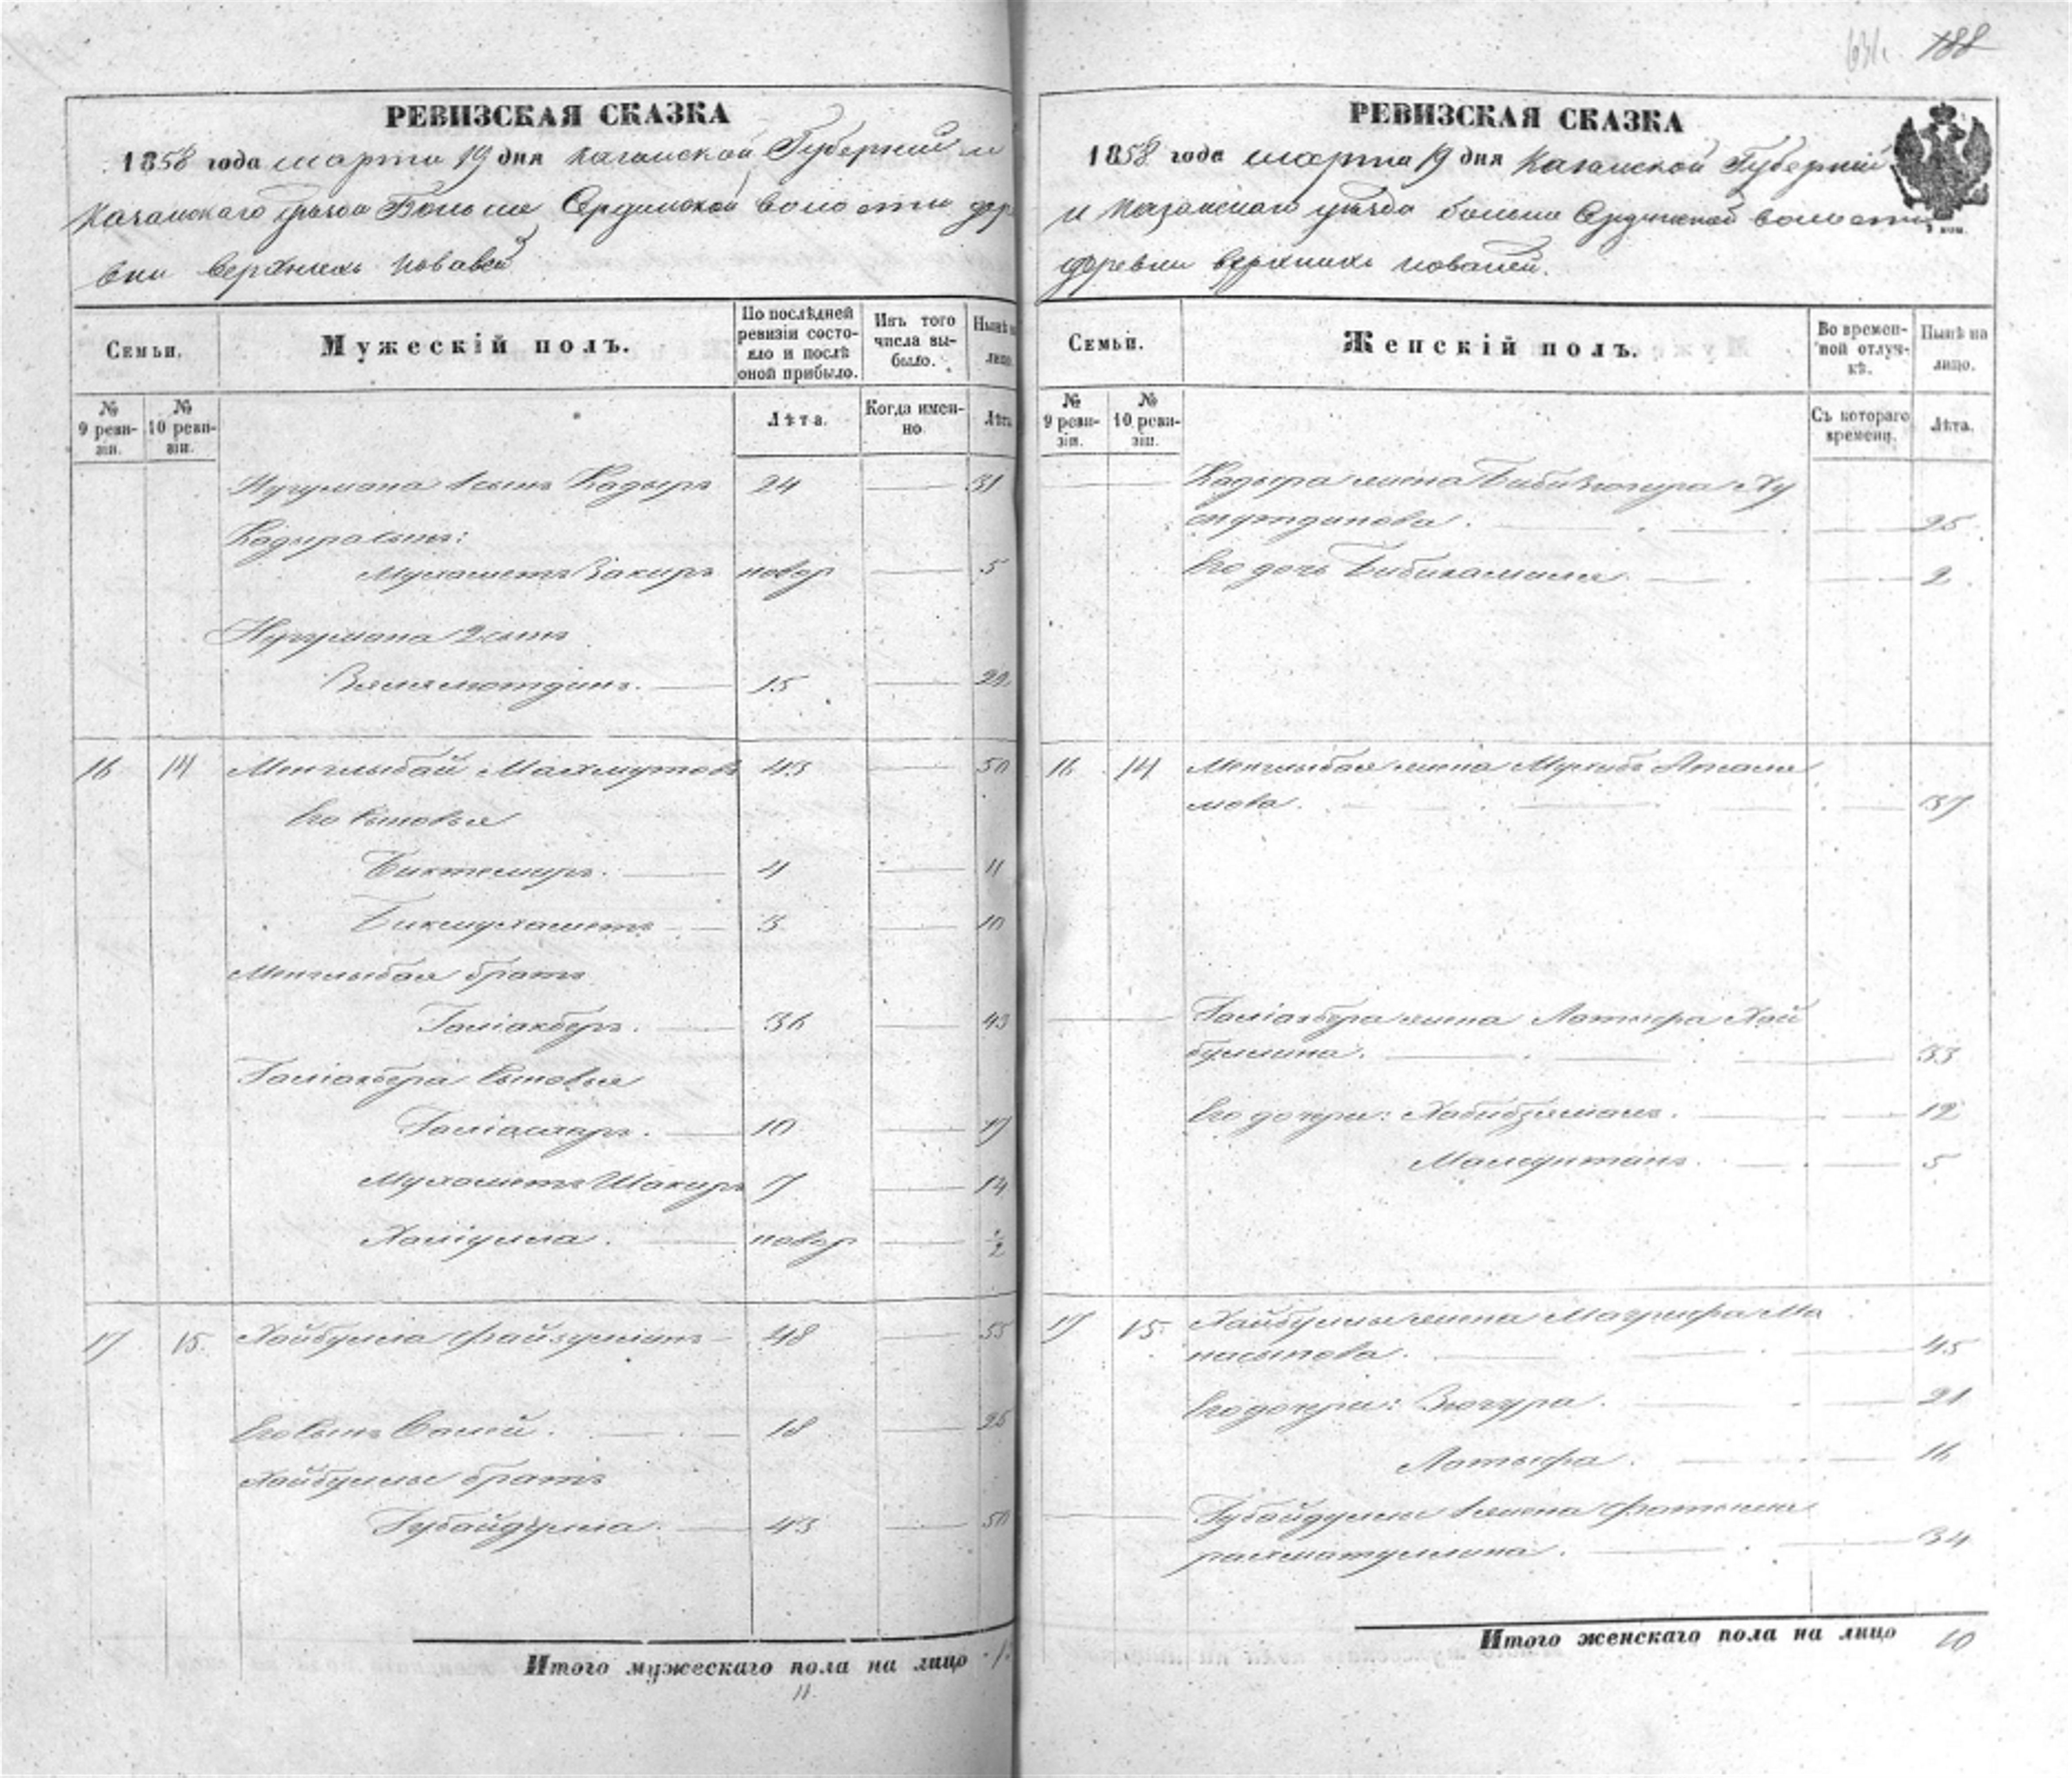 188
РЕВИЗСКАЯ СКАЗКА
1858 года марта 19 дня Казанской Губернии и
Казанскаго уѣзда Больше Сердинской волости дер
вни верхнихъ
Семьи.
Мужескій полъ.
По послѣдней ревизіи состояло и послѣ оной прибыло.
Изъ того числа выбыло.
Нынѣ на лицо.
№ 9 ревизіи.
№ 10 ревизіи.
Лѣта.
Когда именно
Лѣта
Нугумана 1 сынъ Кадыръ 24 31
Кадыра сынъ:
Мухаметъ Закиръ новор 5
Нугумана 2 сынъ
15 22
16 14 Менглыбай Махмутовъ 43 50
Его сыновья
Биктемиръ. 4 11
Бикмухаметъ 3 10
Менглыбая братъ
Галіакберъ. 36 43
Галіакбера сыновья
Галіаскаръ. 10 17
Мухаметъ Шакиръ 7 14
Халіулла. новор ½
17 15. Хайбулла Файзуллинъ 48 55
Его сынъ Самей. 18 25
Хайбуллы братъ
Губайдулла. 43 50
Итого мужескаго пола на лицо
11.
РЕВИЗСКАЯ СКАЗКА
1858 года марта 19 дня Казанской Губерніи
и Казанскаго уѣзда больше Сердинской волости
деревни верхнихъ
Семьи.
Женскій полъ.
Во временной отлучкѣ.
Нынѣ на лицо.
№ 9 ревизіи.
№ 10 ревизіи.
Съ котораго времени.
Лѣта.
Кадыра жена Бибизюгура Ху
снутдинова. 25
Его дочь Бибикамиля 2
16 14 Менглыбая жена
мова. 37
Галіакбера жена Латыфа Хай
буллина. 33
Его дочери: Хабибзямалъ. 12
5
17 15. Хайбуллы жена Магруфа Ма
насыпова. 45
Его дочери: Зюгура. 21
Латыфа. 16
Губайдуллы жена
рахматуллина. 34
Итого женскаго пола на лицо 10